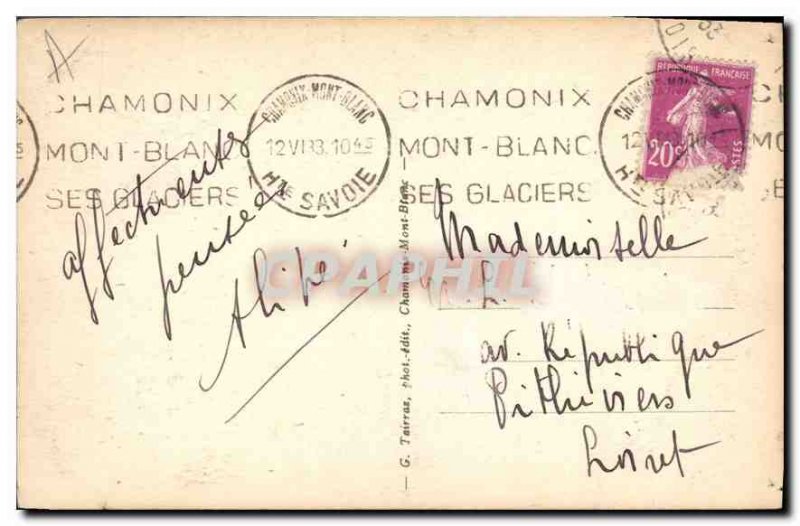 CHAMONIX
MONT-BLANC
SES GLACIERS
CHAMONIX-MONT-BLANC
12 VI 33. 10 45
Hte SAVOIE
CHAMONIX
MONT-BLANC
SES GLACIERS
REPUBLIQUE FRANÇAISE
20c
POSTES
affectueuses
pensées
CPAPHIL
G. Tairraz, phot.-édit., Chamonix-Mont-Blanc
Mademoiselle
av. République
Pithiviers
Loiret